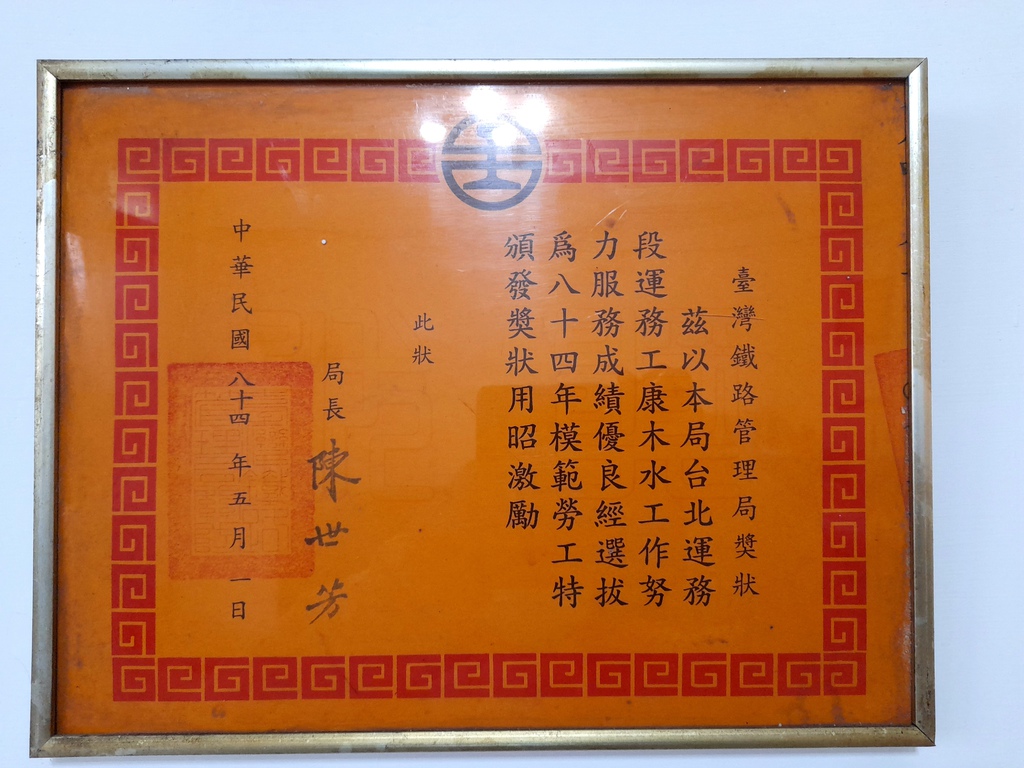 臺灣鐵路管理局獎狀
茲以本局台北運務
段運務工康木水工作努
力服務成績優良經選拔
爲八十四年模範勞工特
頒發獎狀用昭激勵
此狀
局長 陳世芳
中華民國八十四年五月一日